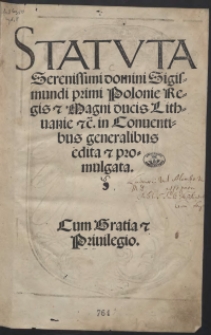 STATVTA
Serenissimi domini Sigis
mundi primi Polonie Re
gis ⁊ Magni ducis Lith
uanie ⁊c̃. in Conuenti
bus generalibus
edita ⁊ pro-
mulgata.
Cum Gratia ⁊
Priuilegio.
764